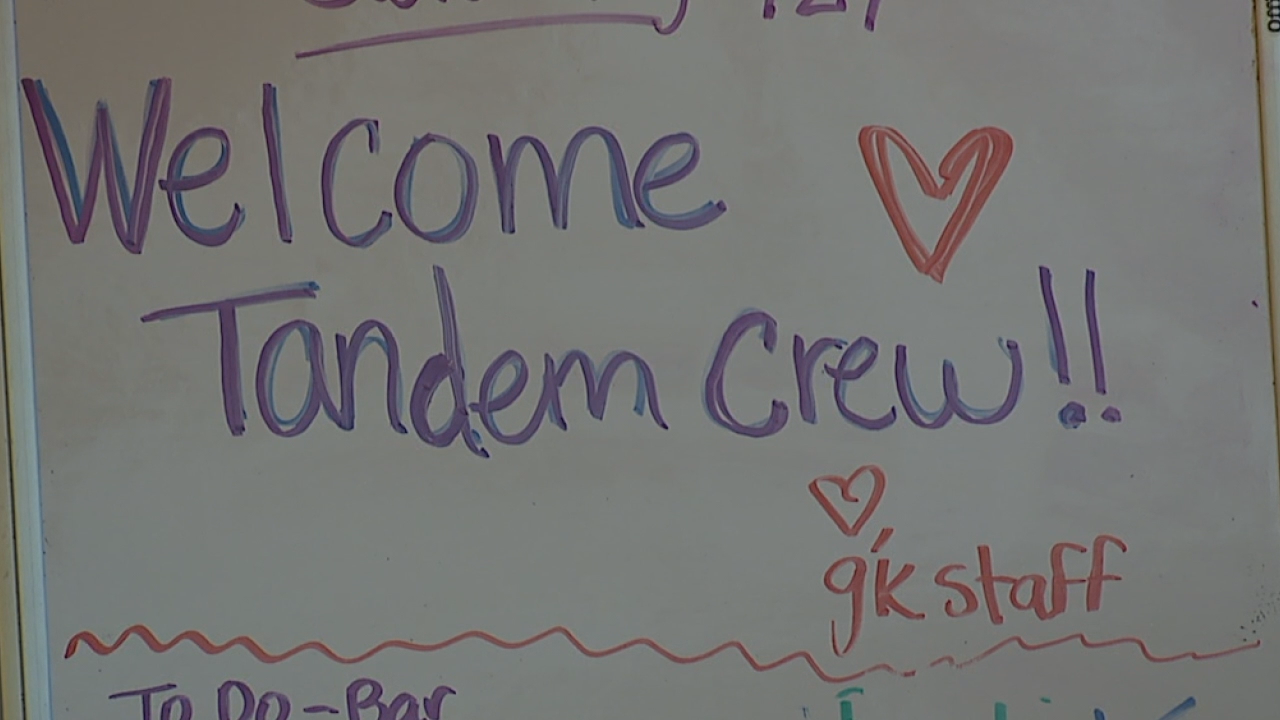 Welcome
Tandem Crew!!
gk staff
To Do - Bar